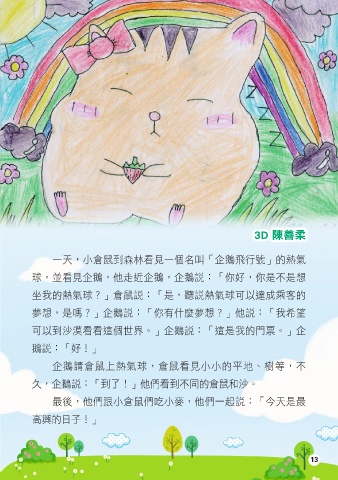 Z
Z
Z
3D 陳善柔
一天，小倉鼠到森林看見一個名叫「企鵝飛行號」的熱氣
球，並看見企鵝，他走近企鵝，企鵝說：「你好，你是不是想
坐我的熱氣球？」倉鼠說：「是，聽說熱氣球可以達成乘客的
夢想，是嗎？」企鵝說：「你有什麼夢想？」他說：「我希望
可以到沙漠看看這個世界。」企鵝說：「這是我的門票。」企
鵝說：「好！」
企鵝請倉鼠上熱氣球，倉鼠看見小小的平地、樹等，不
久，企鵝說：「到了！」他們看到不同的倉鼠和沙。
最後，他們跟小倉鼠們吃小麥，他們一起說：「今天是最
高興的日子！」
13